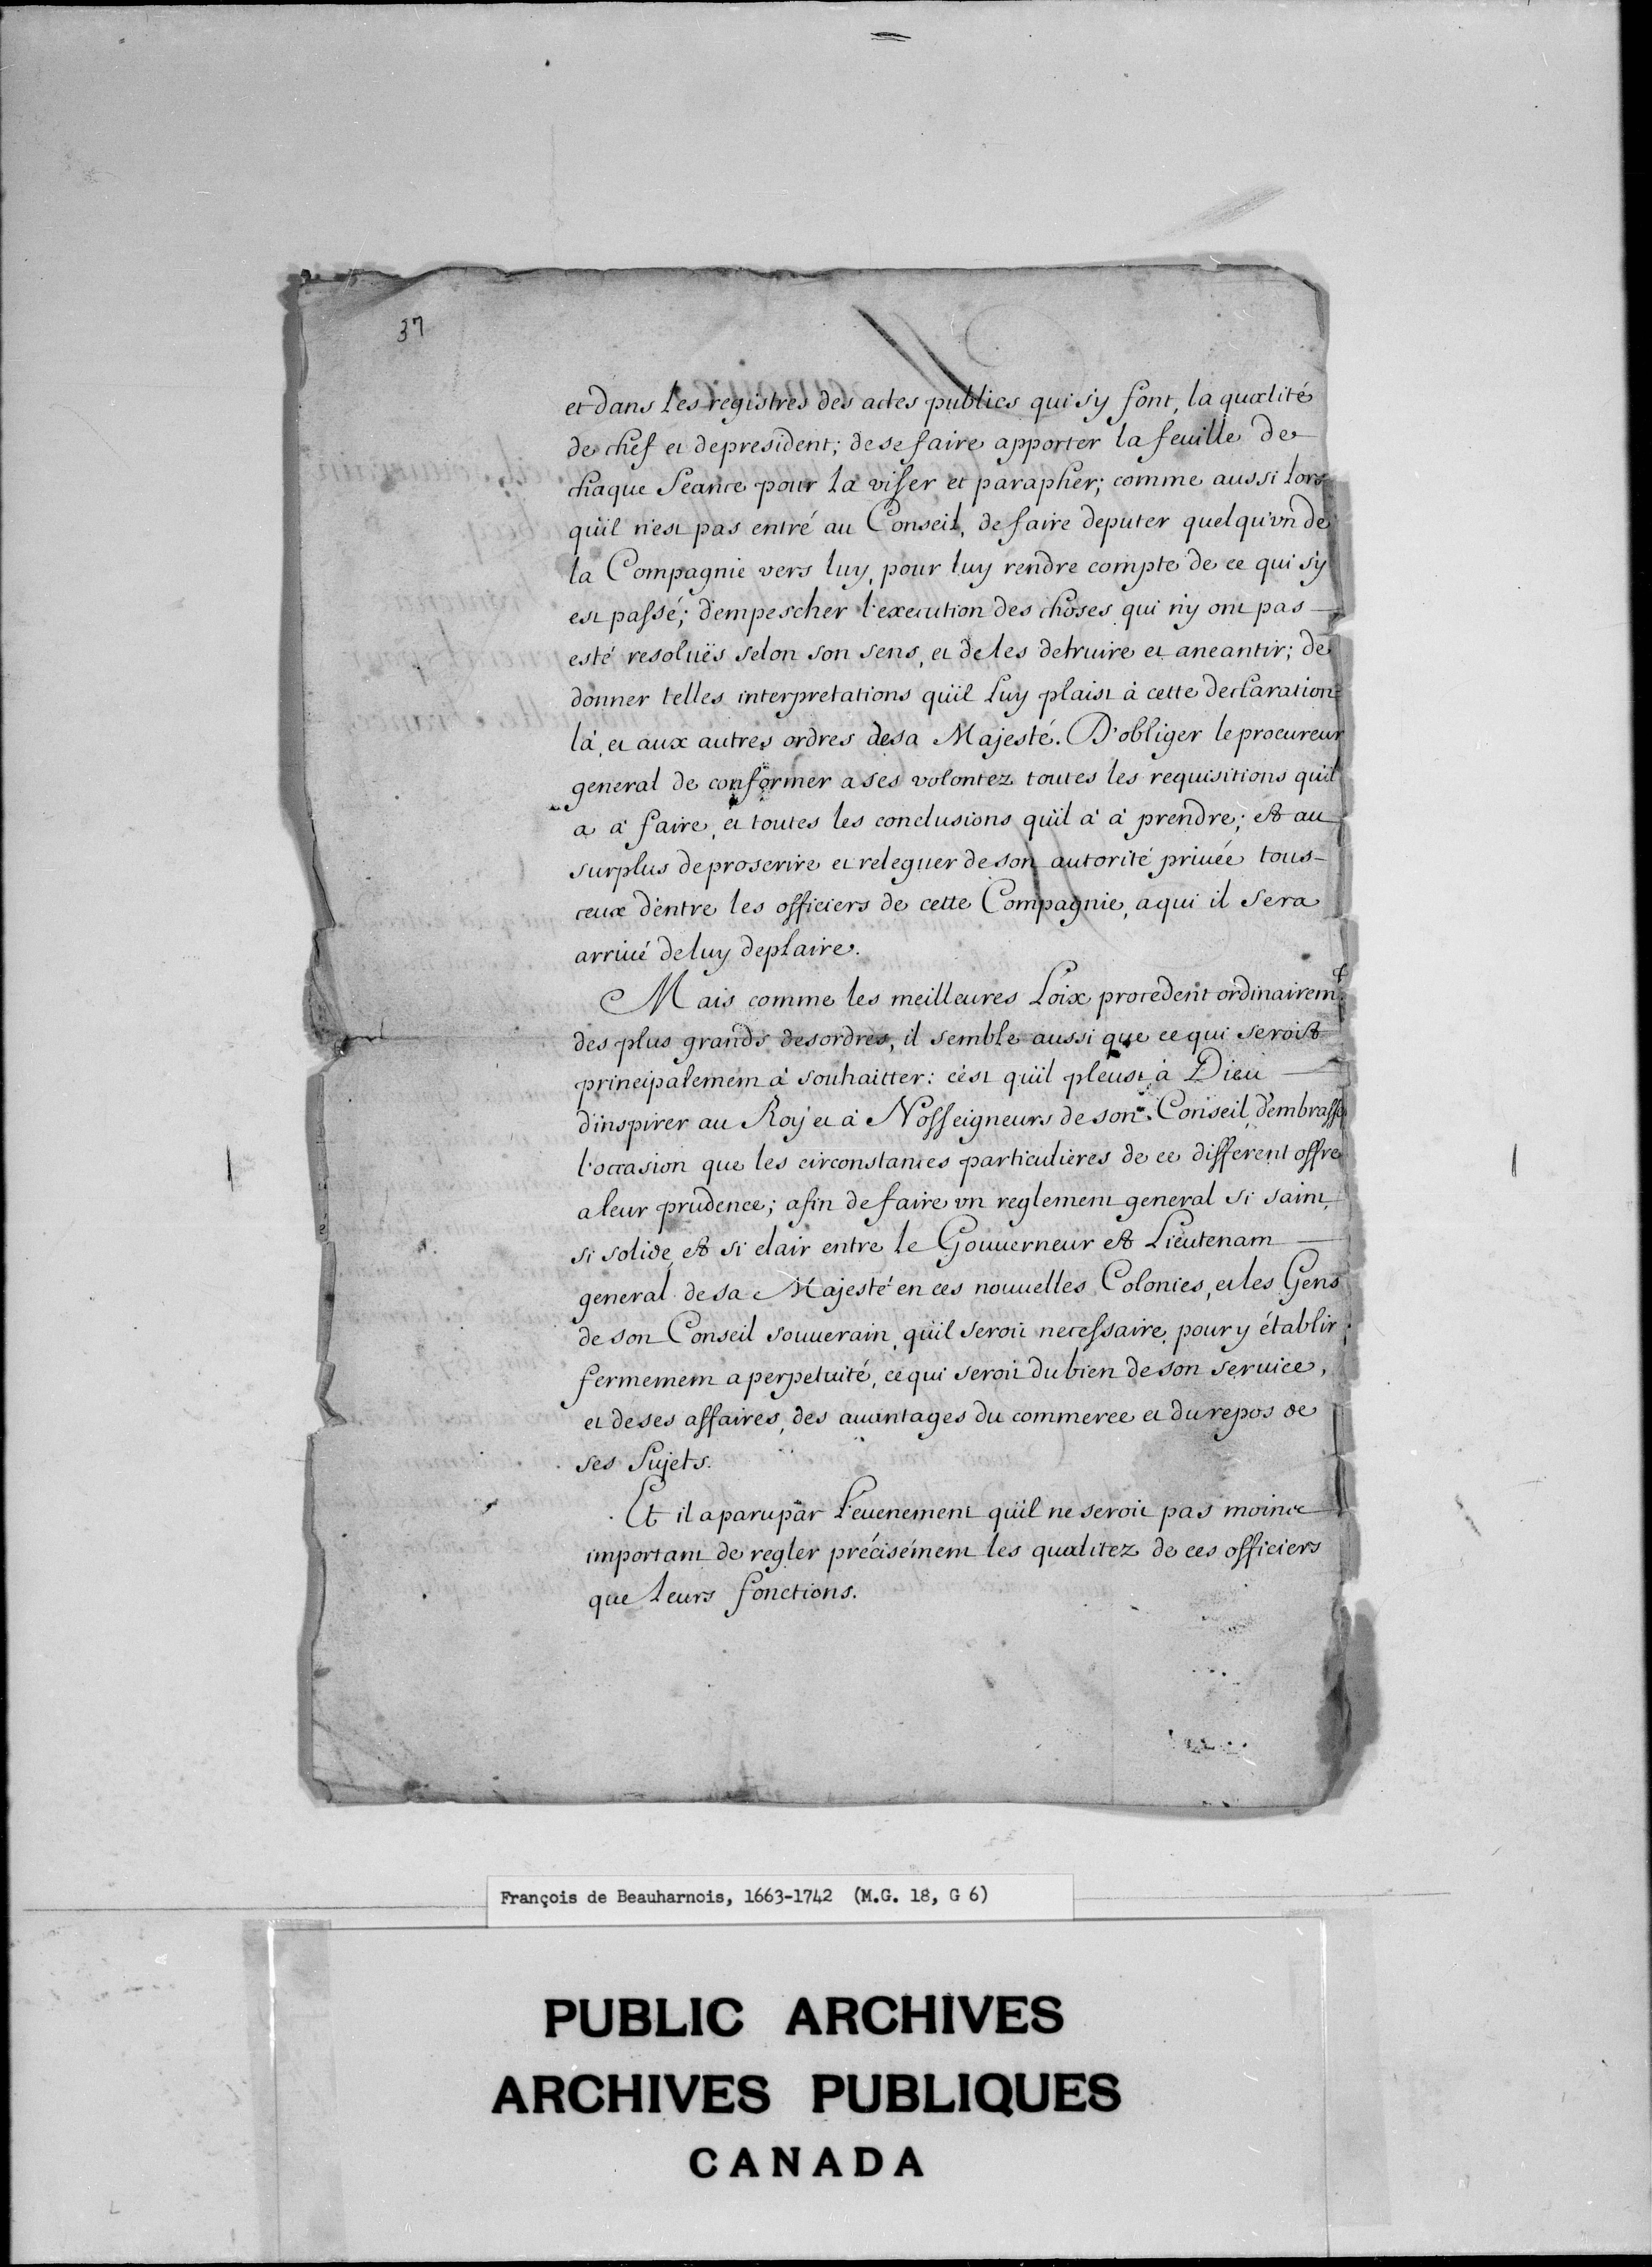 37
et dans les registres des actes publics qui s'y font, la qualité
de chef et de president; de se faire apporter la feuille de
chaque Seance pour la viser et parapher; comme aussi lors
qu'il n'est pas entré au Conseil, de faire deputer quelqu'vn de
la Compagnie vers luy, pour luy rendre compte de ce qui s'y
est passé; d'empescher l'execution des choses qui n'y ont pas
esté resoluës selon son sens, et de les detruire et aneantir; de
donner telles interpretations qu'il luy plaist à cette declaration
là, et aux autres ordres de sa Majesté. D'obliger le procureur
general de conformer a ses volontez toutes les requisitions qu'il
a à faire, et toutes les conclusions qu'il à à prendre; et au
surplus de proscrire et releguer de son autorité priuée tous
ceux d'entre les officiers de cette Compagnie, a qui il sera
arriué de luy deplaire.
Mais comme les meilleures Loix procedent ordinairemt
des plus grands desordres, il semble aussi que ce qui seroit
principalement à souhaitter: c'est qu'il pleust à Dieu
d'inspirer au Roy et à Nosseigneurs de son Conseil, d'embrasser
l'occasion que les circonstances particulieres de ce different offre
a leur prudence; afin de faire vn reglement general si saint,
si solide, et si clair entre le Gouuerneur et Lieutenant
general de sa Majesté en ces nouuelles Colonies, et les Gens
de son Conseil souuerain, qu'il seroit necessaire, pour y établir
fermement a perpetuité, ce qui seroit du bien de son seruice,
et de ses affaires, des auantages du commerce et du repos de
ses Sujets.
Et il a paru par l'euenement qu'il ne seroit pas moins
important de regler précisément les qualitez de ces officiers
que leurs fonctions.
François de Beauharnois, 1663-1742 (M.G. 18, G 6)
PUBLIC ARCHIVES
ARCHIVES PUBLIQUES
CANADA